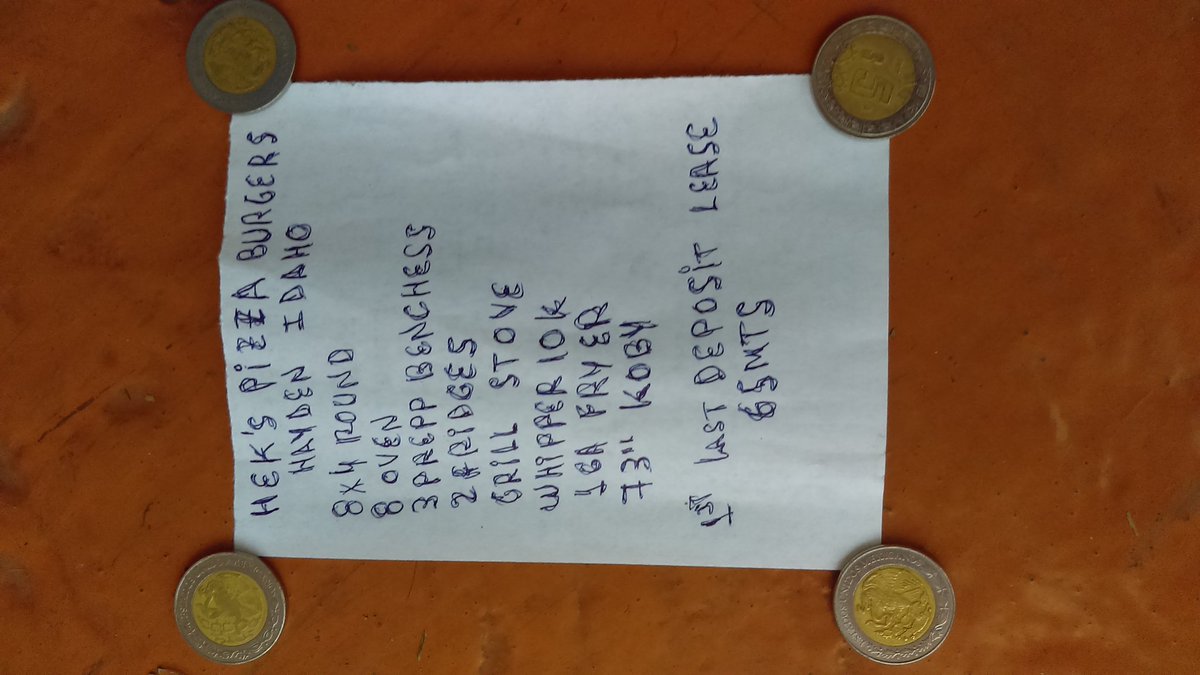 HEK'S PIZZA BURGERS
HAYDEN IDAHO
8x4 ROUND
8 OVEN
3 PREPP BENCHESS
2 FRIDGES
GRILL STOVE
WHIPPER 10K
FRYER
73"
1st LAST DEPOSIT LEASE